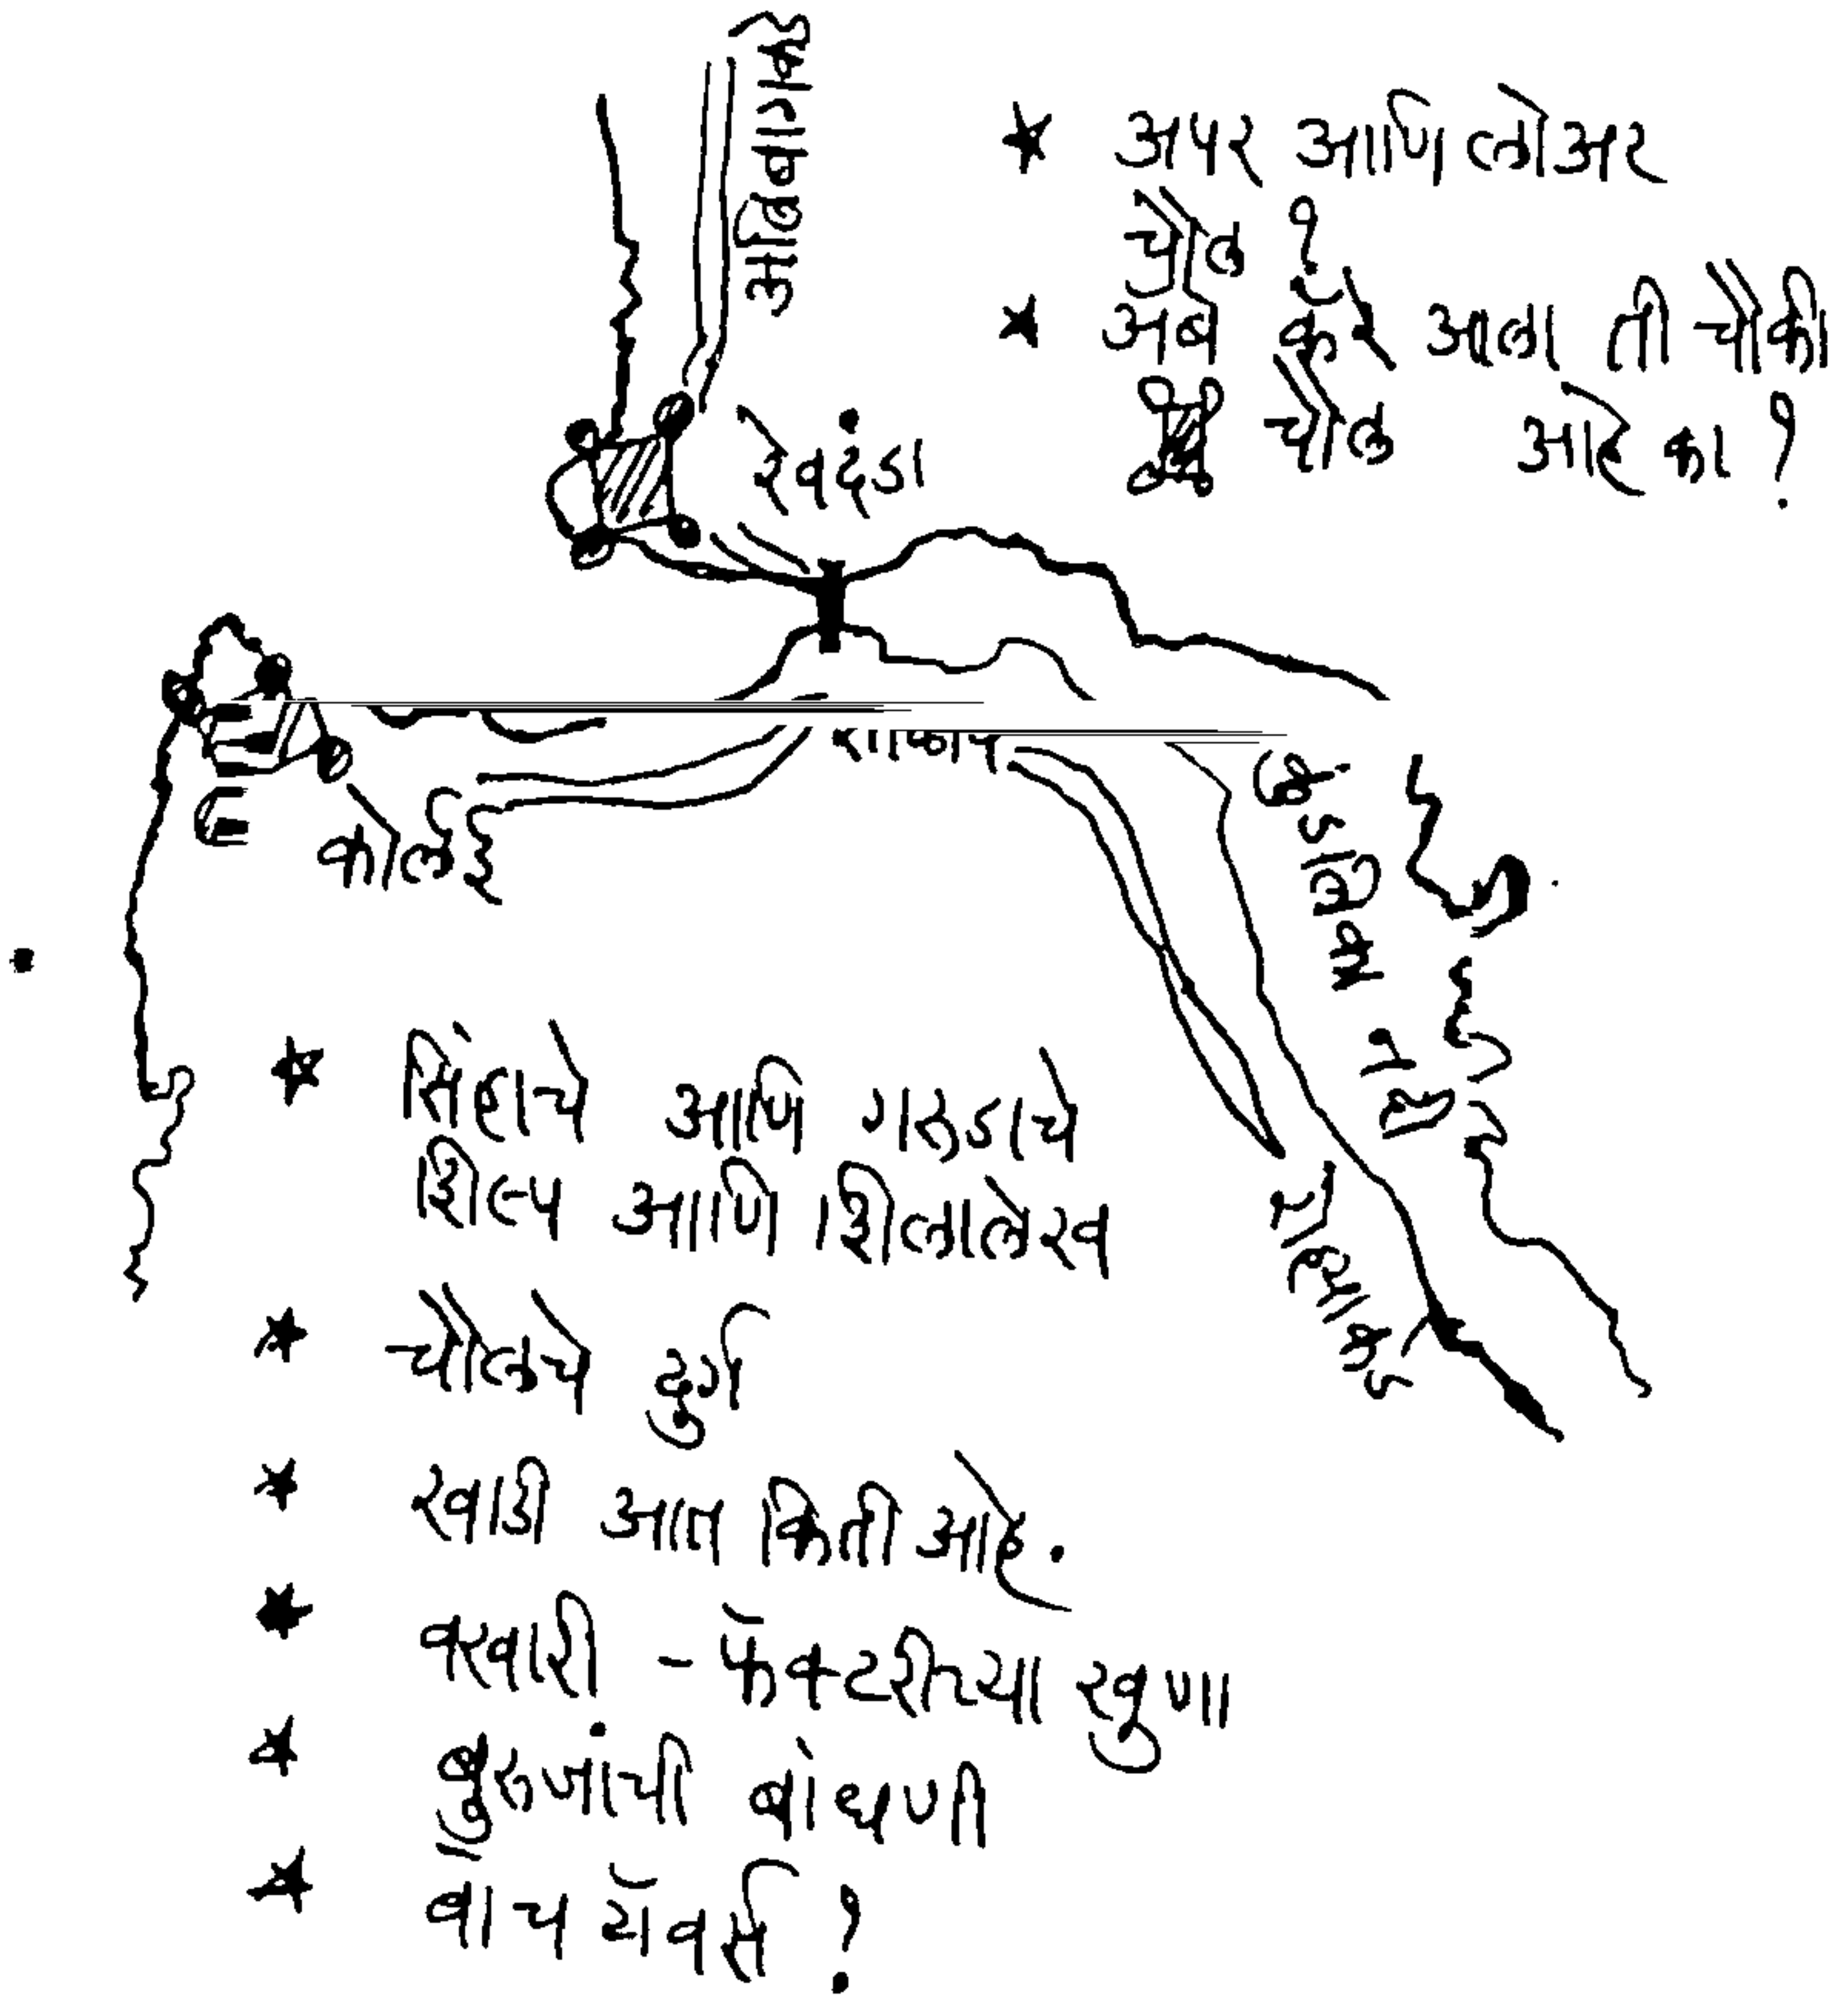 अलिबागकडे
★ अपर आणि लोअर
चौल ?
★ अँबे करे आला ती चौकी
चौल आहे का ?
रेवदंडा
कोर्लई
कुंडलिका नदी
रोह्याकडे
★ सिंहाचे आणि गरुडाचे
शिल्प आणि शिलालेख
★ चौलचे दुर्ग
★ खाडी आत किती आहे.
★ क्वारी - फॅक्टरीच्या खुणा
★ बुरुजांची बांधणी
★ वॉच टॉवर्स ?